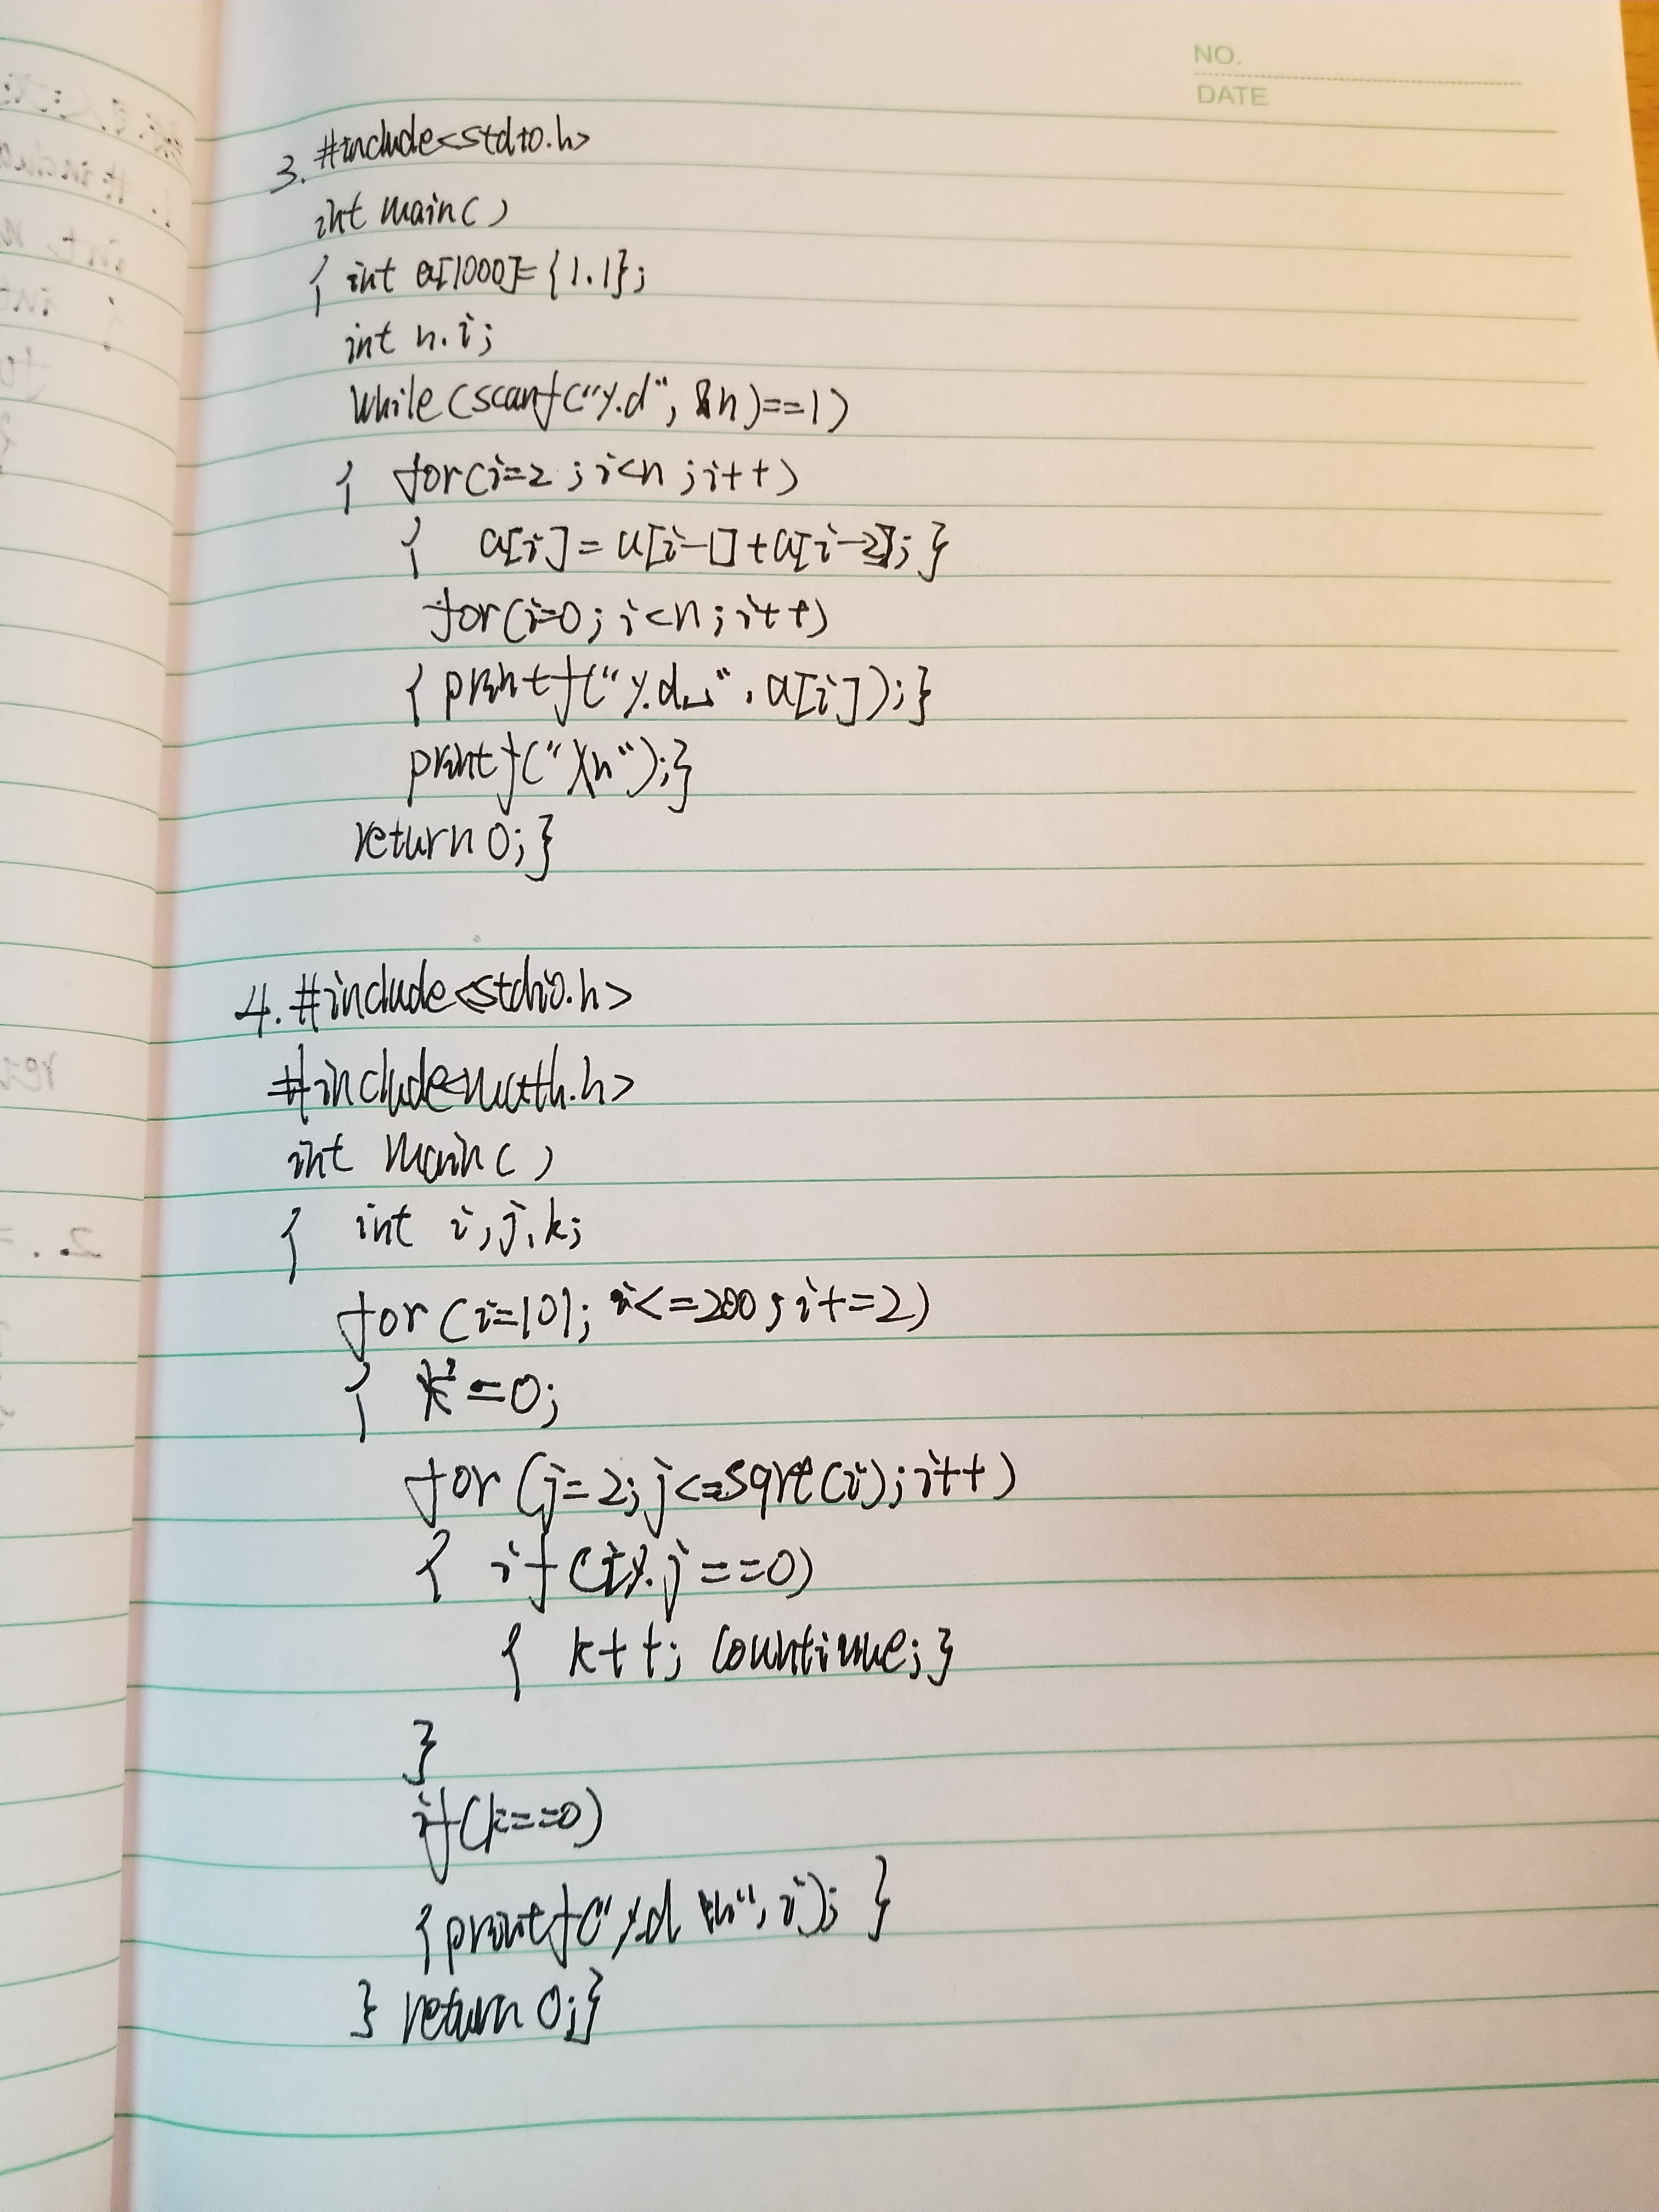 NO.
DATE
3. #include<stdio.h>
int main()
{ int a[1000]={1.1};
int n.i;
while(scanf("%d", &n)==1)
{ for(i=2;i<n;i++)
{ a[i]=a[i-1]+a[i-2];}
for(i=0;i<n;i++)
{printf("%d␣".a[i]);}
printf("\n");}
return 0;}
4. #include<stdio.h>
#include<math.h>
int main()
{ int i,j.k;
for(i=101;i<=200;i+=2)
{ k=0;
for(j=2;j<=sqrt(i);i++)
{ if(i%j==0)
{ k++; countinue;}
}
if(k==0)
{printf("%d \n",i);}
} return 0;}